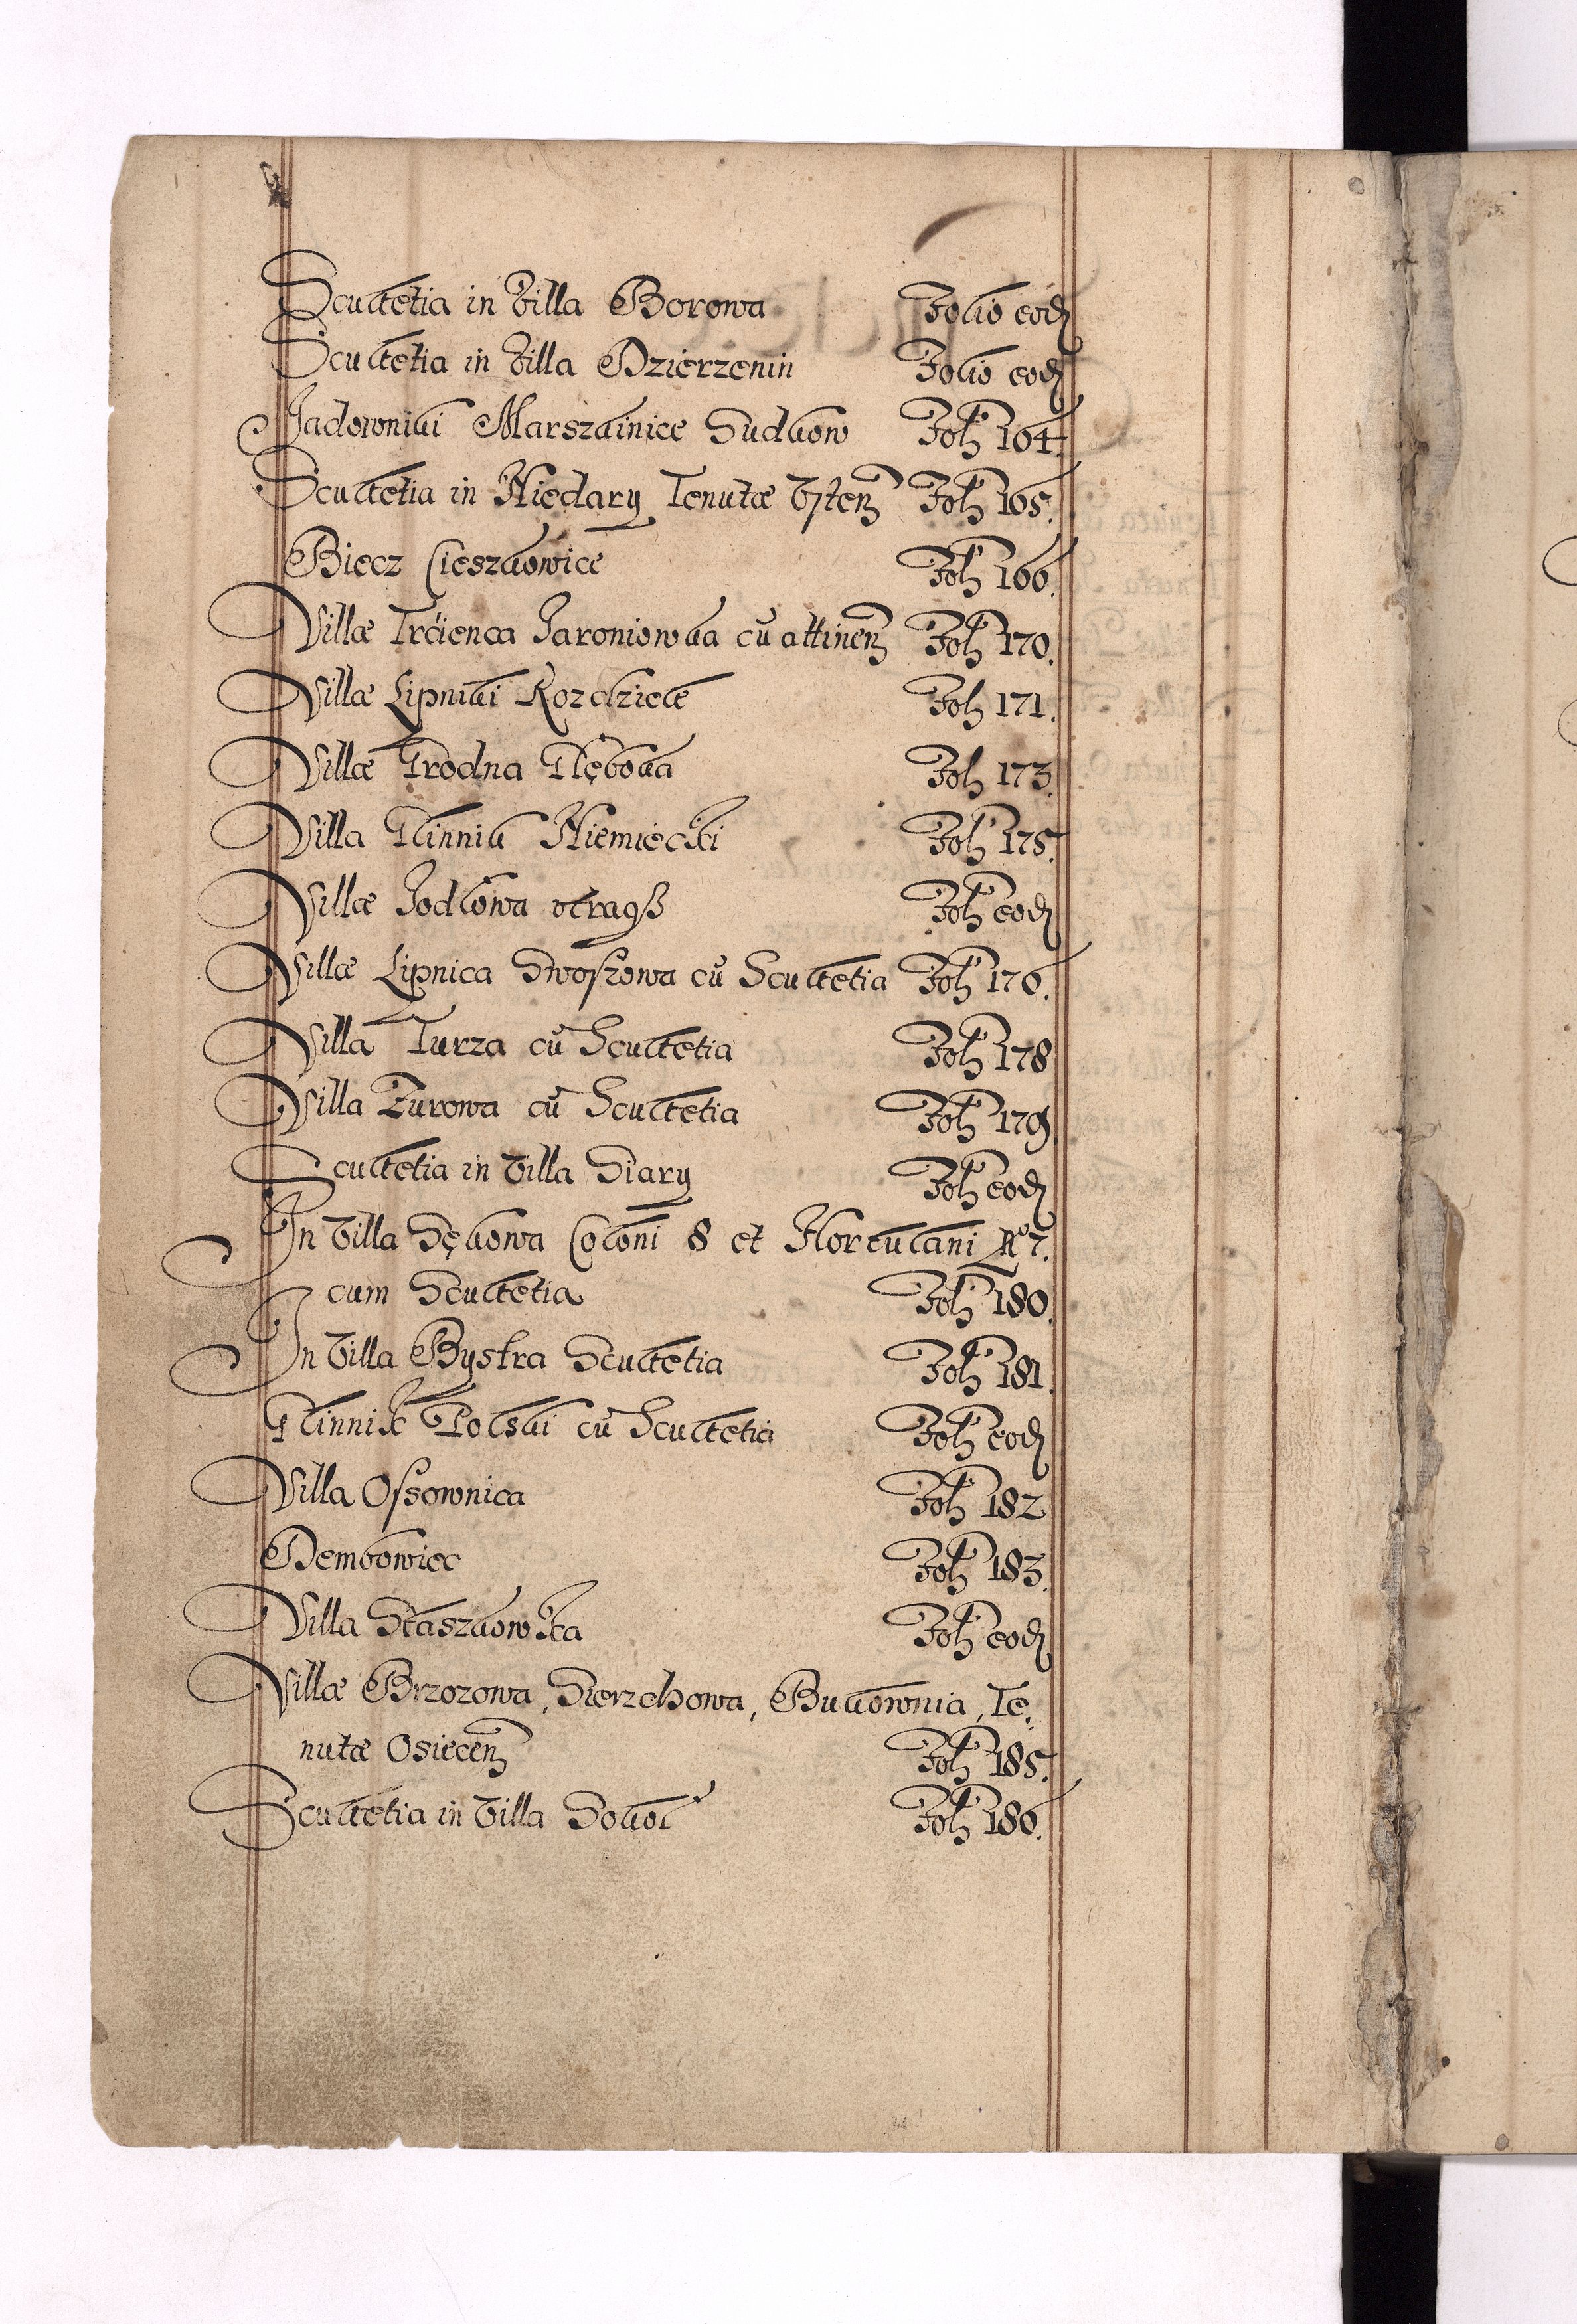 Scultetia in Villa Borowa Folio eod
Scultetia in Villa Dzierzenin Folio eod
Jadowniki Marszainice Sudkow Fol 164.
Scultetia in Niedary Tenutæ Vsten Fol 165.
Biecz Cieszkowice Fol 166.
Villæ Trćienca Jaroniowka cū attinen Fol 170.
Villæ Lipniki Rozdziele Fol 171.
Villæ Grodna Głęboka Fol 173.
Villa Klinnik Niemiecki Fol 175.
Villæ Jodłowa vtraqz Fol eod
Villæ Lipnica Swoszowa cū Scultetia Fol 176.
Villa Turza cū Scultetia Fol 178
Villa Zurowa cū Scultetia Fol 179
Scultetia in Villa Siary Fol eod
In Villa Sękowa Coloni 8 et Hortulani Nº 7.
cum Scultetia Fol 180.
In Villa Bystra Scultetia Fol 181.
Klinnik Polski cū Scultetia Fol eod
Villa Ossownica Fol 182
Dembowiec Fol 183.
Villa Staszkowka Fol eod
Villæ Brzozowa, Sierzchowa, Bukownia, Te,
nutæ Osiecen Fol 185.
Scultetia in Villa Sokoł Fol 186.